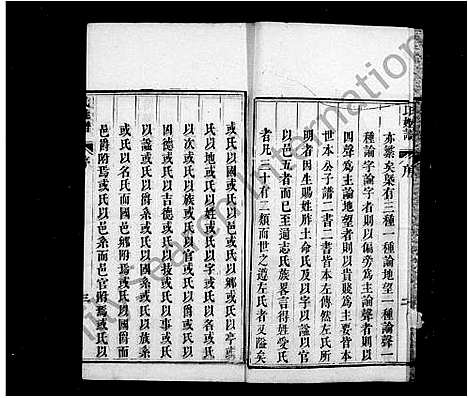 氏族譜
序
二
亦繁矣槩有三種一種論地望一種論聲一
種論字論字者則以偏旁爲主論聲者則以
四聲爲主論地望者則以貴賤爲主要皆本
世本公子譜二書二書皆本左傳然左氏所
明者因生賜姓胙土命氏及以字以諡以官
以邑五者而已至通志氏族畧言得姓受氏
者凡三十有二類而世之遵左氏者又隘矣
或氏以國或氏以邑或氏以鄉或氏以亭或
氏以地或氏以姓或氏以字或氏以名或氏
以次或氏以族或氏以官或氏以爵或氏以
凶德或氏以吉德或氏以技或氏以事或氏
以諡或氏以爵系或氏以國系或氏以族系
或氏以名氏而國邑鄉附焉或氏以國爵而
邑爵附焉或氏以邑系而邑官附焉或氏以
氏族譜
序
三